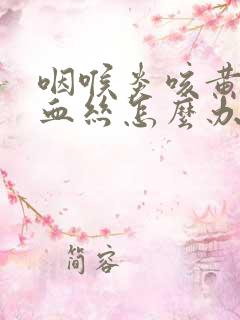 咽喉炎咳黄
血丝怎麼办
简容